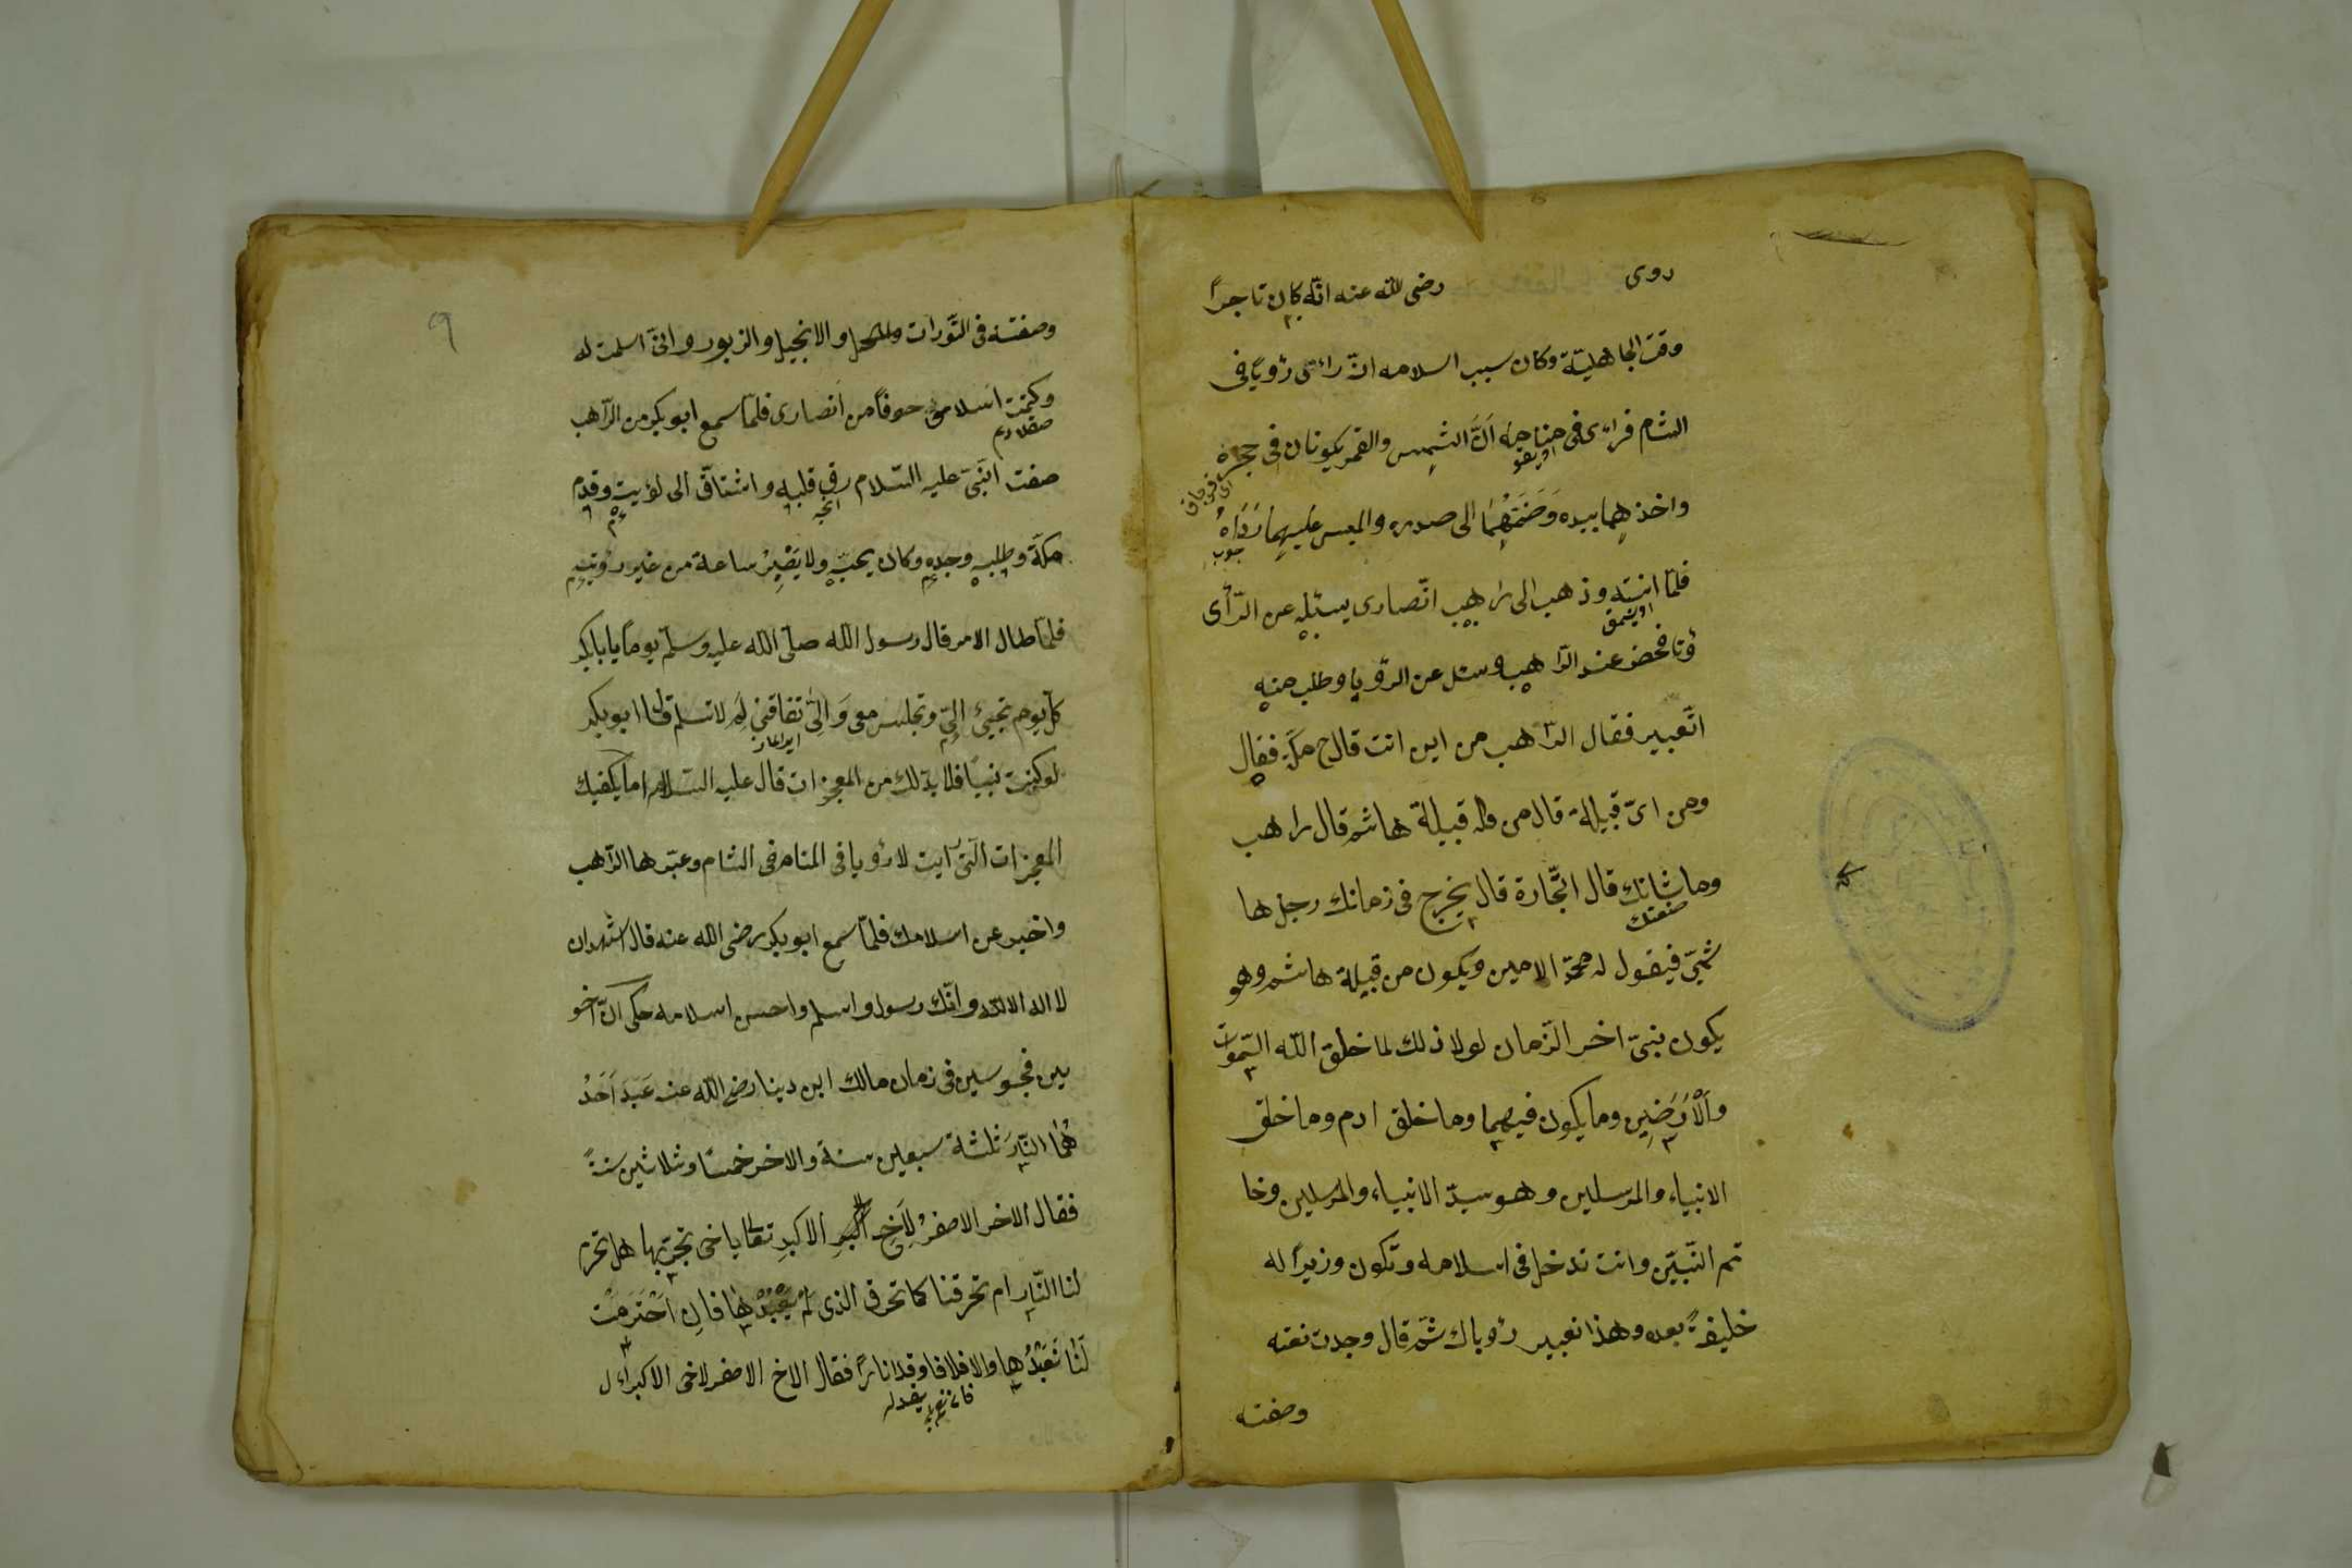 روى رضى الله عنه انّه كان تاجراً
وقت الجاهليّة وكان سبب اسلامه انّ رائى رؤياً فى
الشام فرائى فى منامه اَنَّ الشمس والقمر يكونان فى حجره
اويقو
واخذهما بيده وَضَمَّهُمَا الى صدره والبس عليهما رَدَاهُ
فلمّا انتبه وذهب الى راهب انّصارى يسئله عن الرّأى
فحضر عند الرّاهب وسئل عن الرؤيا وطلب منه
اتّعبير فقال الرّاهب من اين انت قال من مكّة فقال
ومن اىّ قبيلة قال من قبيلة هاشم قال راهب
وما شانك قال التّجارة قال يخرج فى زمانك رجل ها
صنعتك
شمىّ فيقول له محمّد الامين ويكون من قبيلة هاشم وهو
يكون نبىّ اخر الزّمان لولا ذلك لما خلق اللّه السّموات
والْاَرَضِين وما يكون فيهما وما خلق ادم وما خلق
الانبياء والمرسلين وهو سيّد الانبياء والمرسلين وخا
تم النّبيّن وانت تدخل فى اسلامه وتكون وزيراً له
خليفةً بعده وهذا تعبير رؤياك ثمّ قال وجدت نعته
وصفته
٩
وصفته فى التّورات والانجيل والزبور وانىّ اسلمت له
وكتمت اسلامى خوفاً من انصارى فلمّا سمع ابو بكر من الرّاهب
صقلادم
صفت انّبىّ عليه السّلام رق قلبه واشتاق الى لؤيته وقدم
مكّة وطلبه وجده وكان يحبّه ولا يَصْبِرُ ساعة من غير رؤيته
فلمّا طال الامر قال رسول اللّه صلّى اللّه عليه وسلّم يوماً يا بابكر
كلّ يوم تجيئ الىّ وتجلس معى وَ لِمَ لا تسلم قال ابو بكر
لو كنت نبيّاً فلا بدّ لك من المعجزات قال عليه السّلام اما يكفيك
المعجزات الّتى رايت لا رؤيا فى المنام فى الشام وعبّرها الرّاهب
واخبر عن اسلامك فلمّا سمع ابو بكر رضى اللّه عنه قال اشهد ان
لا اله الا اللّه وانّك رسول واسلم واحسن اسلامه حكى انّ اخو
ين مجوسين فى زمان مالك ابن دينا رضى اللّه عنه عَبَدَ اَحَدُ
هُمَا النَّارَ ثلثة سبعين سنة والاخر خمسًا وثلاثين سنةً
فقال الاخر الاصغرُ لِاَخِ الاكبرِ تعال يا خى نجرّبها هل تحرم
لنا النّار ام تحرقنا كما تحرق الذى لَمْ يَعْبُدْها فان اَحْتَرَمَتْ
لَنَا نَعْبُدُها والا فلا فاوقدا ناراً فقال الاخ الاصغر لاخى الاكبر